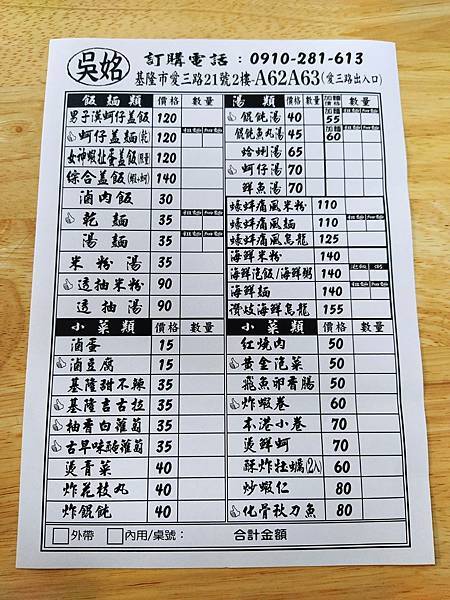 吳姳
訂購電話：0910-281-613
基隆市愛三路21號2樓-A62A63(愛三路出入口)
飯麵類 價格 數量
男子漢蚵仔蓋飯 120
蚵仔蓋麵(乾) 120
女神蝦扯蛋蓋飯 120
綜合蓋飯(蝦+蚵) 140
滷肉飯 30
乾麵 35
湯麵 35
米粉湯 35
透抽米粉 90
透抽湯 90
湯類 價格 加麵價格 數量
餛飩湯 40 55
餛飩魚丸湯 45 60
蛤蜊湯 65
蚵仔湯 70
鮮魚湯 70
蠔蚌痛風米粉 110
蠔蚌痛風麵 110
蠔蚌痛風烏龍 125
海鮮米粉 140
海鮮泡飯/海鮮粥 140
海鮮麵 140
讚岐海鮮烏龍 155
小菜類 價格 數量
滷蛋 15
滷豆腐 15
基隆甜不辣 35
基隆吉古拉 35
柚香白蘿蔔 35
古早味醃蘿蔔 35
燙青菜 40
炸花枝丸 40
炸餛飩 40
小菜類 價格 數量
紅燒肉 50
黃金泡菜 50
飛魚卵香腸 50
炸蝦卷 60
本港小卷 70
燙鮮蚵 70
酥炸牡蠣(2入) 60
炒蝦仁 80
化骨秋刀魚 80
外帶 內用/桌號： 合計金額